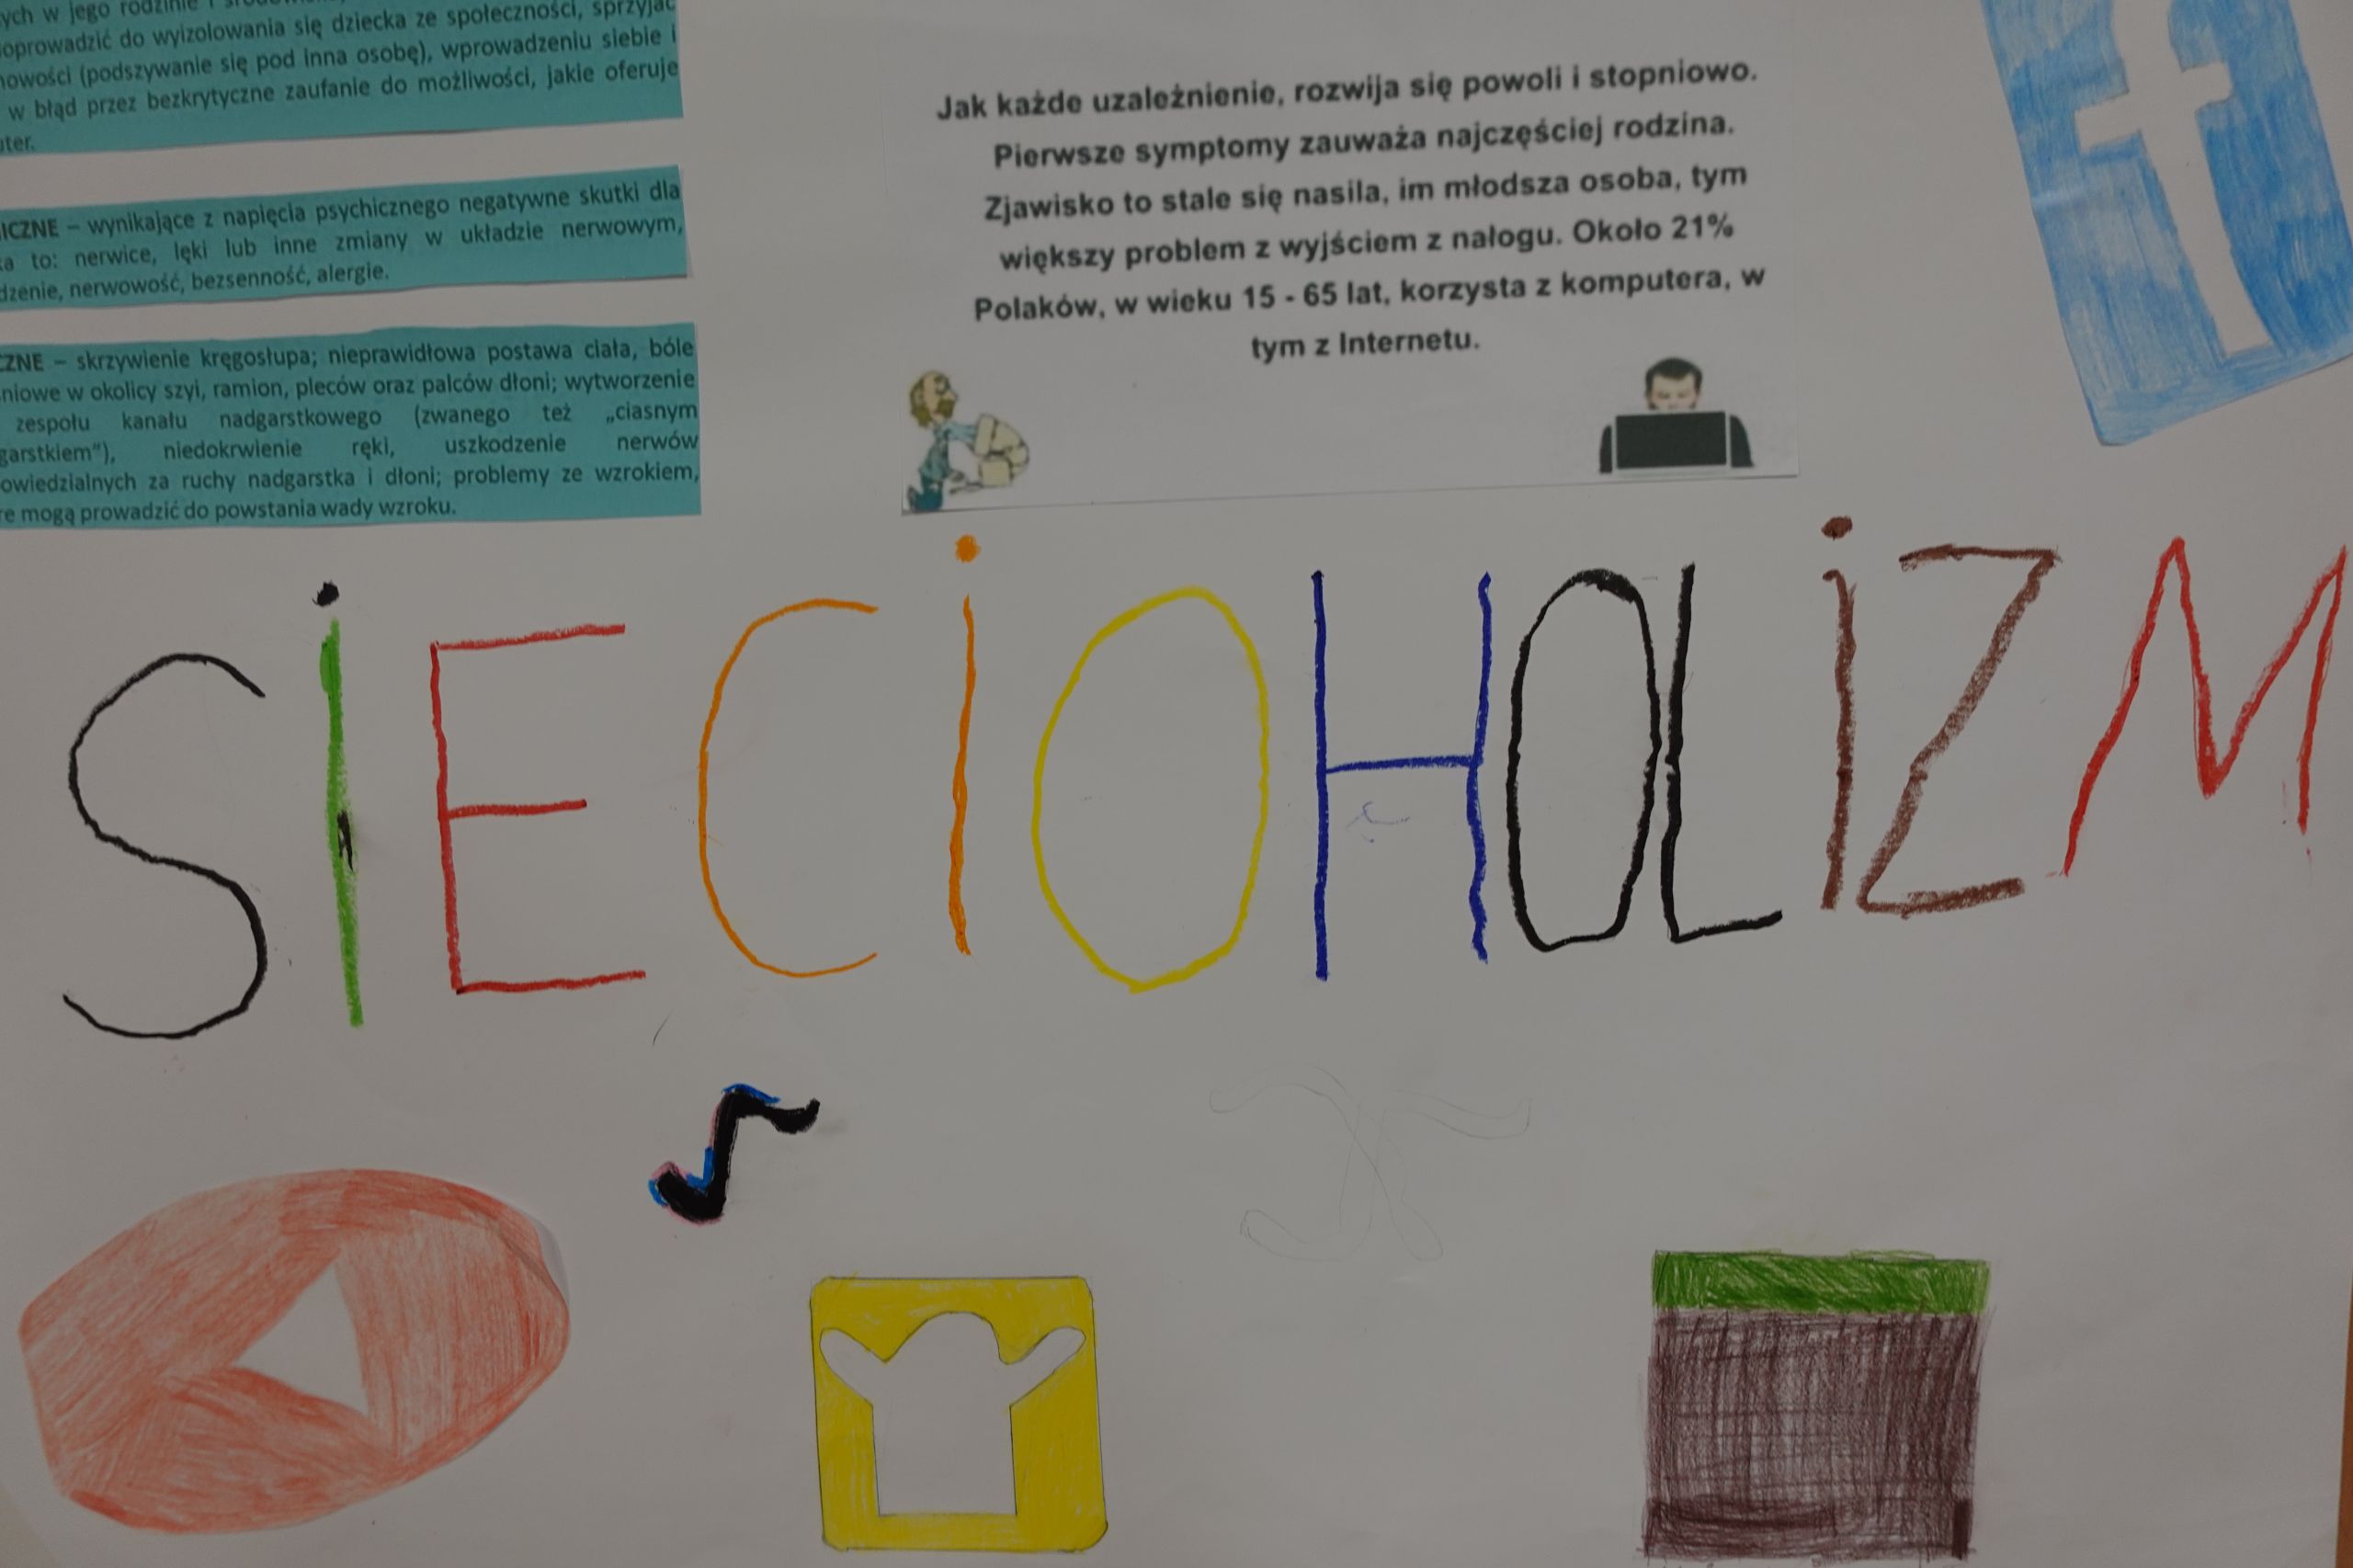 ych w jego rodzinie i
oprowadzić do wyizolowania się dziecka ze społeczności, sprzyjać
nowości (podszywanie się pod inna osobę), wprowadzeniu siebie i
w błąd przez bezkrytyczne zaufanie do możliwości, jakie oferuje
ter.
ICZNE – wynikające z napięcia psychicznego negatywne skutki dla
ka to: nerwice, lęki lub inne zmiany w układzie nerwowym,
dzenie, nerwowość, bezsenność, alergie.
CZNE – skrzywienie kręgosłupa; nieprawidłowa postawa ciała, bóle
niowe w okolicy szyi, ramion, pleców oraz palców dłoni; wytworzenie
zespołu kanału nadgarstkowego (zwanego też „ciasnym
garstkiem"), niedokrwienie ręki, uszkodzenie nerwów
owiedzialnych za ruchy nadgarstka i dłoni; problemy ze wzrokiem,
re mogą prowadzić do powstania wady wzroku.
Jak każde uzależnienie, rozwija się powoli i stopniowo.
Pierwsze symptomy zauważa najczęściej rodzina.
Zjawisko to stale się nasila, im młodsza osoba, tym
większy problem z wyjściem z nałogu. Około 21%
Polaków, w wieku 15 - 65 lat, korzysta z komputera, w
tym z Internetu.
f
SiECiOHOLiZM